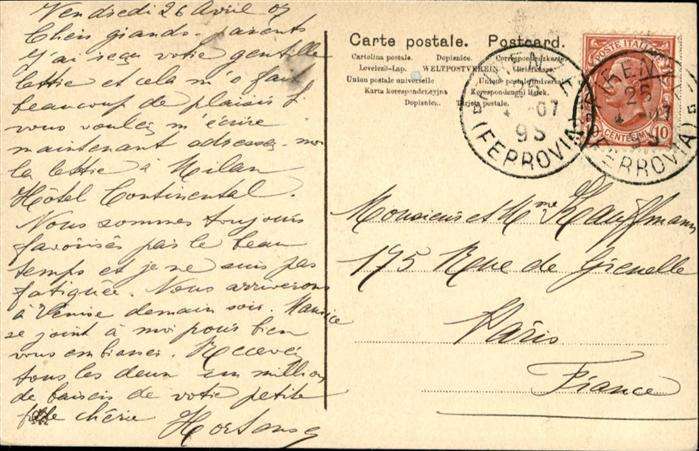 Vendredi 26 Avril 07
Chers grands-parents
J'ai reçu votre gentille
lettre et cela m'a fait
beaucoup de plaisir si
vous voulez m'écrire
maintenant adressez moi
la lettre à Milan
Hôtel Continental.
Nous sommes toujours
favorisés pas le beau
temps et je ne suis pas
fatiguée. Nous arriverons
à Venise demain soir. Maurice
se joint à moi pour bien
vous embrasser. Recevez
tous les deux un million
de baisers de votre petite
fille chérie
Hortense
Carte postale. Postcard.
Cartolina postale. Dopisnice. Correspondenzkarte.
Levelező-Lap. WELTPOSTVEREIN Cartolina.
Union postale universelle
Karta korrespondencyjna
Dopisnice. Tarjeta postal.
POSTE ITALIANE
CENTESIMI 10
FIRENZE
07
9S
(FERROVIA)
FIRENZE
25
07
9S
(FERROVIA)
Monsieur et Mme Kauffmann
175 Rue de Grenelle
Paris
France